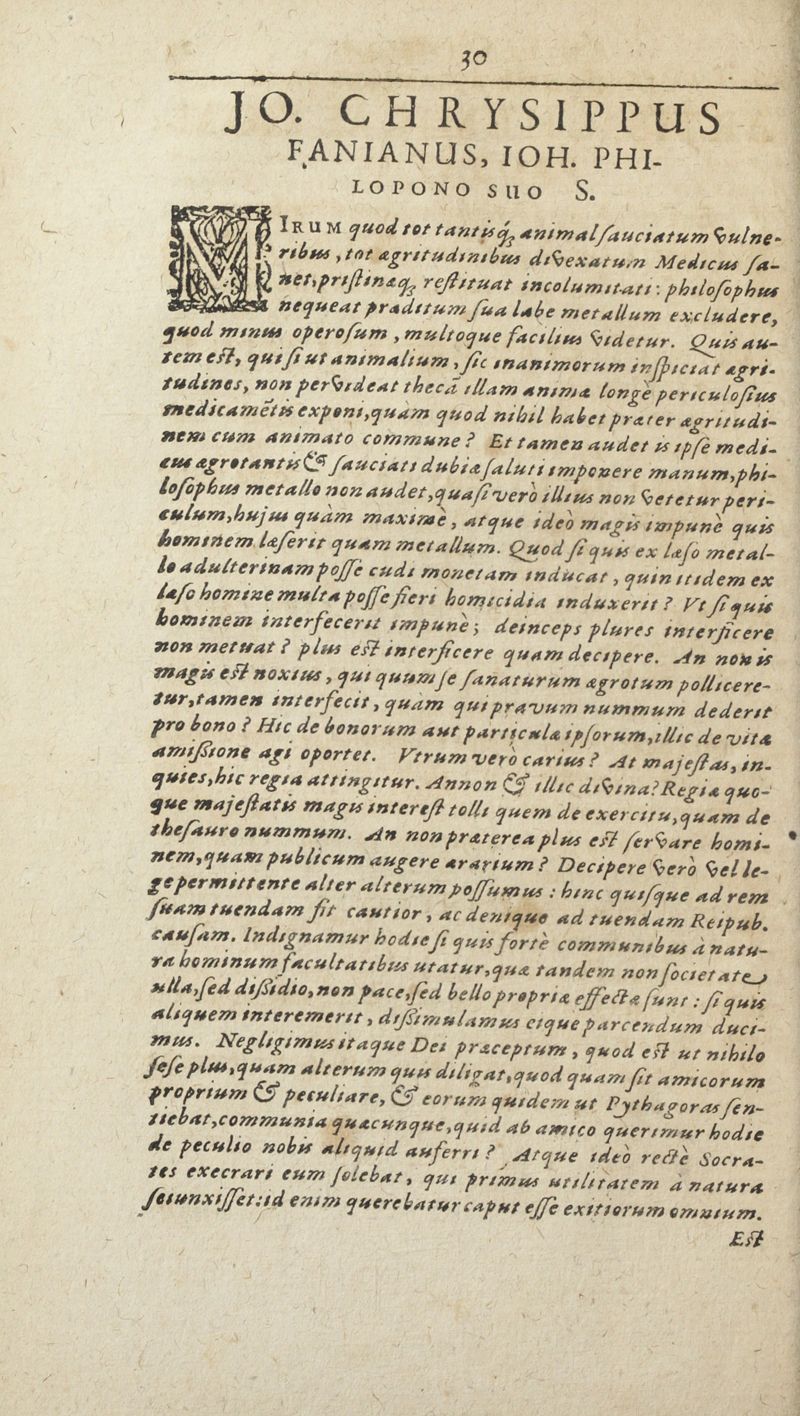 30
JO. CHRYSIPPUS
FANIANUS, IOH. PHI-
LOPONO SUO S.
MIRUM quod tot tantisq; animal sauciatum vulne-
ribus, tot ægritudinibus divexatum Medicus sa-
net, pristinæq; restituat incolumitati: philosophus
nequeat præditum sua labe metallum excludere,
quod minus operosum, multoque facilius videtur. Quis au-
tem est, qui si ut animalium, sic inanimorum inspiciat ægri-
tudines, non pervideat thecã illam animæ longè periculosius
medicamẽtis exponi, quàm quod nihil habet præter ægritudi-
nem cum animato commune? Et tamen audet is ipse medi-
cus ægrotantis & sauciati dubiæ saluti imponere manum, phi-
losophus metallo non audet, quasi verò illius non vetetur peri-
culum, hujus quàm maximè, atque ideò magis impunè quis
hominem læserit quam metallum. Quod si quis ex læso metal-
lo adulterinam posse cudi monetam inducat, quin itidem ex
læso homine multa posse fieri homicidia induxerit? Vt si quis
hominem interfecerit impunè; deinceps plures interficere
non metuat? plus est interficere quam decipere. An non is
magis est noxius, qui quum se sanaturum ægrotum pollicere-
tur, tamen interfecit, quam qui pravum nummum dederit
pro bono? Hic de bonorum aut particula ipsorum, illic de vitæ
amissione agi oportet. Vtrum verò carius? At majestas, in-
quies, hic regia attingitur. Annon & illic divina? Regiæ quo-
que majestatis magis interest tolli quem de exercitu, quam de
thesauro nummum. An non præterea plus est servare homi-
nem, quam publicum augere ærarium? Decipere verò vel le-
ge permittente alter alterum possumus: hinc quisque ad rem
suam tuendam fit cautior, ac denique ad tuendam Reipub.
causam. Indignamur hodie si quis fortè communibus à natu-
ra hominum facultatibus utatur, quæ tandem non societate
ulla, sed dissidio, non pace, sed bello propriæ effectæ sunt: si quis
aliquem interemerit, dissimulamus eique parcendum duci-
mus. Negligimus itaque Dei præceptum, quod est ut nihilo
sese plus, quam alterum quis diligat, quod quam sit amicorum
proprium & peculiare, & eorum quidem ut Pythagoras sen-
tiebat, communia quæcunque, quid ab amico querimur hodie
de peculio nobis aliquid auferri? Atque ideò rectè Socra-
tes execrari eum solebat, qui primus utilitatem à natura
seiunxisset: id enim querebatur caput esse exitiorum omnium.
Est